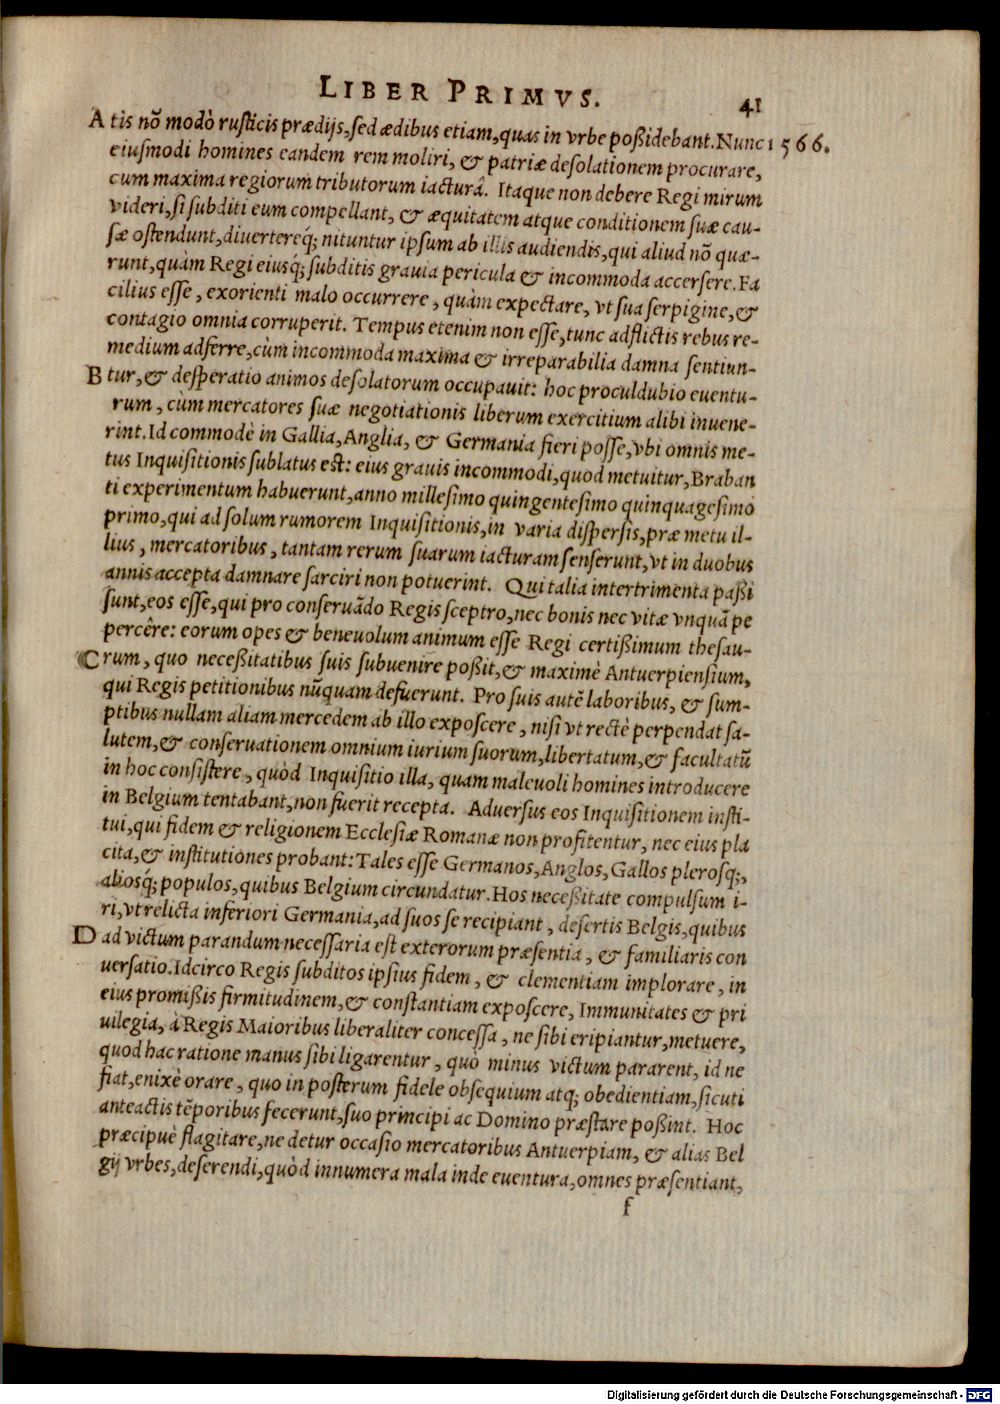 LIBER PRIMVS. 41
A tis nõ modò rusticis prædijs, sed ædibus etiam, quas in vrbe poßidebant. Nunc 1566.
eiusmodi homines eandem rem moliri, & patriæ desolationem procurare,
cum maxima regiorum tributorum iacturâ. Itaque non debere Regi mirum
videri, si subditi eum compellant, & æquitatem atque conditionem suæ cau-
sæ ostendunt, diuertereq́; nituntur ipsum ab illis audiendis, qui aliud nõ quæ-
runt, quàm Regi eiusq́; subditis grauia pericula & incommoda accersere. Fa
cilius esse, exorienti malo occurrere, quàm expectare, vt sua serpigine, &
contagio omnia corruperit. Tempus etenim non esse, tunc adflictis rebus re-
medium adferre, cùm incommoda maxima & irreparabilia damna sentiun-
B tur, & desperatio animos desolatorum occupauit: hoc proculdubio euentu-
rum, cùm mercatores suæ negotiationis liberum exercitium alibi inuene-
rint. Id commodè in Gallia, Anglia, & Germania fieri posse, vbi omnis me-
tus Inquisitionis sublatus est: eius grauis incommodi, quod metuitur, Braban
ti experimentum habuerunt, anno millesimo quingentesimo quinquagesimo
primo, qui ad solum rumorem Inquisitionis, in varia dispersis, præ metu il-
lius, mercatoribus, tantam rerum suarum iacturam senserunt, vt in duobus
annis accepta damna resarciri non potuerint. Qui talia intertrimenta paßi
sunt, eos esse, qui pro conseruãdo Regis sceptro, nec bonis nec vitæ vnquã pe
percêre: eorum opes & beneuolum animum esse Regi certißimum thesau-
C rum, quo neceßitatibus suis subuenire poßit, & maximè Antuerpiensium,
qui Regis petitionibus nũquam defuerunt. Pro suis autẽ laboribus, & sum-
ptibus nullam aliam mercedem ab illo exposcere, nisi vt rectè perpendat sa-
lutem, & conseruationem omnium iurium suorum, libertatum, & facultatũ
in hoc consistere, quòd Inquisitio illa, quam maleuoli homines introducere
in Belgium tentabant, non fuerit recepta. Aduersus eos Inquisitionem insti-
tui, qui fidem & religionem Ecclesiæ Romanæ non profitentur, nec eius pla
cita, & institutiones probant: Tales esse Germanos, Anglos, Gallos plerosq́;,
aliosq́; populos, quibus Belgium circundatur. Hos neceßitate compulsum i-
ri, vt relicta inferiori Germania, ad suos se recipiant, desertis Belgis, quibus
D ad victum parandum necessaria est exterorum præsentia, & familiaris con
uersatio. Idcirco Regis subditos ipsius fidem, & clementiam implorare, in
eius promißis firmitudinem, & constantiam exposcere, Immunitates & pri
uilegia, à Regis Maioribus liberaliter concessa, ne sibi eripiantur, metuere,
quod hac ratione manus sibi ligarentur, quò minus victum pararent, id ne
fiat, enixè orare, quo in posterum fidele obsequium atq; obedientiam, sicuti
anteactis tẽporibus fecerunt, suo principi ac Domino præstare poßint. Hoc
præcipuè flagitare, ne detur occasio mercatoribus Antuerpiam, & alias Bel
gij vrbes, deserendi, quòd innumera mala inde euentura, omnes præsentiant,
f
Digitalisierung gefördert durch die Deutsche Forschungsgemeinschaft - DFG